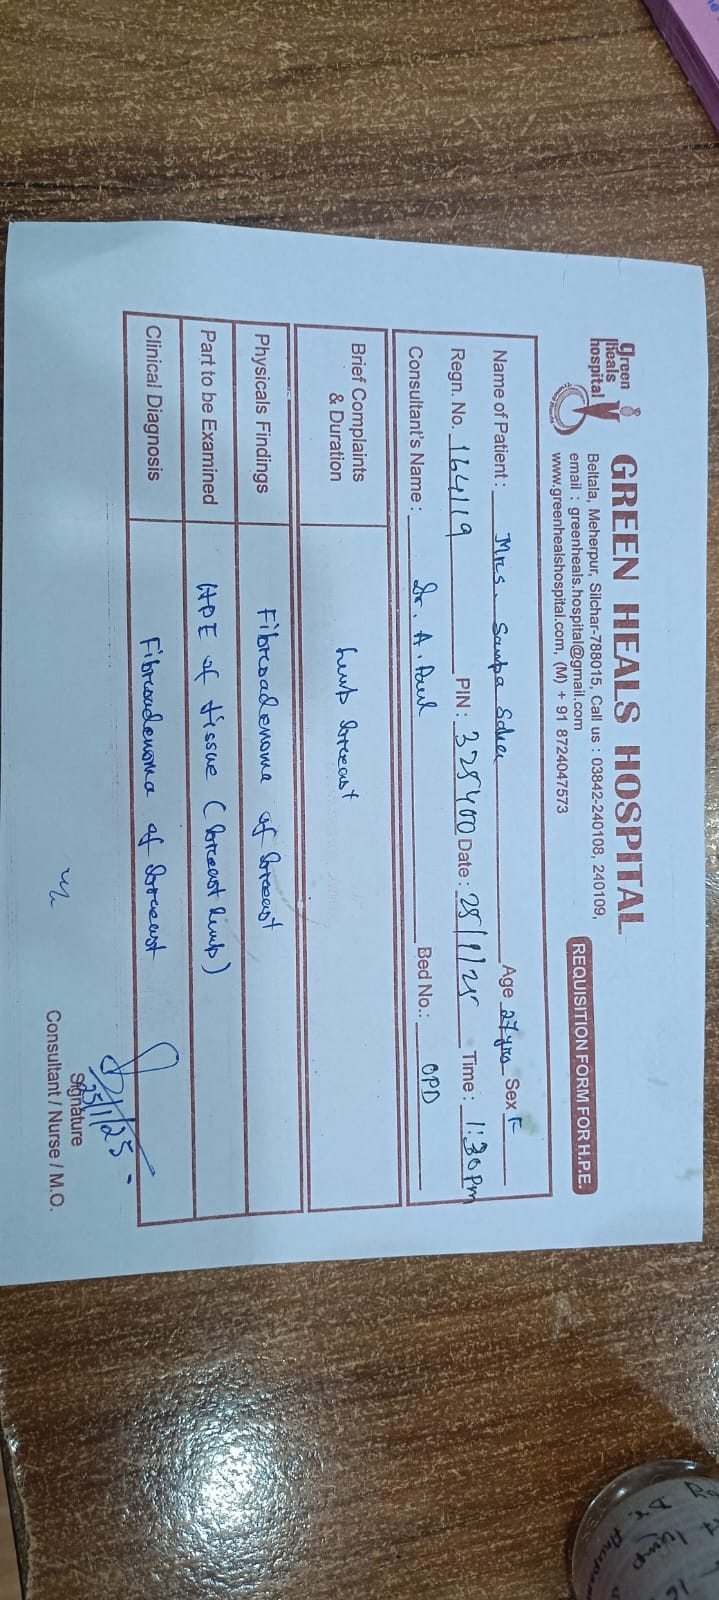 green
heals
hospital
GREEN HEALS HOSPITAL
Beltala, Meherpur, Silchar-788015, Call us : 03842-240108, 240109,
email : greenheals.hospital@gmail.com
www.greenhealshospital.com, (M) + 91 8724047573
REQUISITION FORM FOR H.P.E.
Name of Patient : Mrs. Sampa Saha Age 27 yrs Sex F
Regn. No. 164119 PIN : 325400 Date : 25/1/25 Time : 1:30 pm
Consultant's Name : Dr. A. Paul Bed No.: OPD
Brief Complaints & Duration Lump breast
Physicals Findings Fibroadenoma of breast
Part to be Examined HPE of tissue (breast lump)
Clinical Diagnosis Fibroadenoma of breast
25/1/25
Signature
Consultant / Nurse / M.O.
Dr.
lump